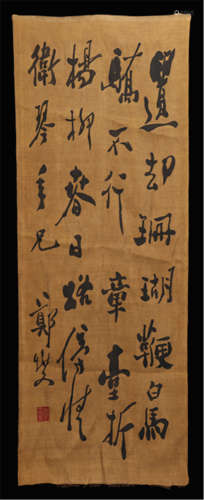 遺却珊瑚鞭白馬
驕不行章臺折
楊柳春日路傍情
衛琴年兄 鄭燮